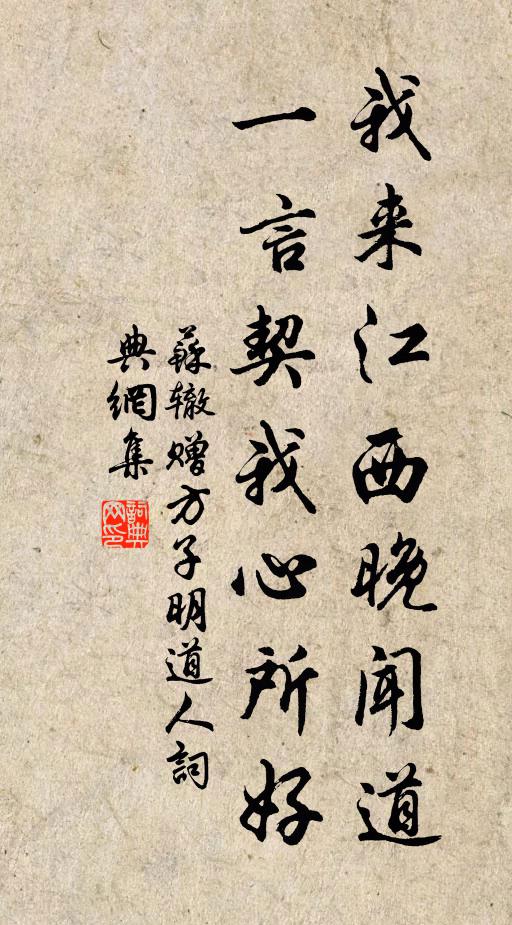 我来江西晚闻道
一言契我心所好
蘇辙赠方子明道人詞
典網集
詞典
网印